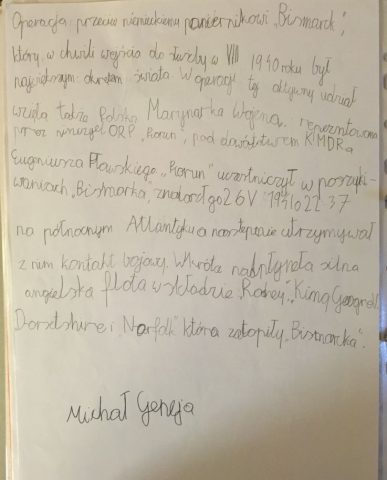 Operacja: przeciw niemieckiemu pancernikowi „Bismarck”,
który, w chwili wejścia do służby w VIII 1940 roku był
największym okrętem świata W operacji tej aktywny udział
wzięła także Polska Marynarka Wojenna, reprezentowana
przez niszczyciel ORP „Piorun”, pod dowództwem KMDRa
Eugeniusza Pławskiego. „Piorun” uczestniczył w poszuki-
waniach „Bismarka, znalazł go 26 V 1941 o 22 37
na północnym Atlantyku a następnie utrzymywał
z nim kontakt bojowy. Wkrótce nadpłynęła silna
angielska flota w składzie „Rodney”, „King George V”,
Dorsetshire i „Norfolk” która zatopiły „Bismarcka”.
Michał